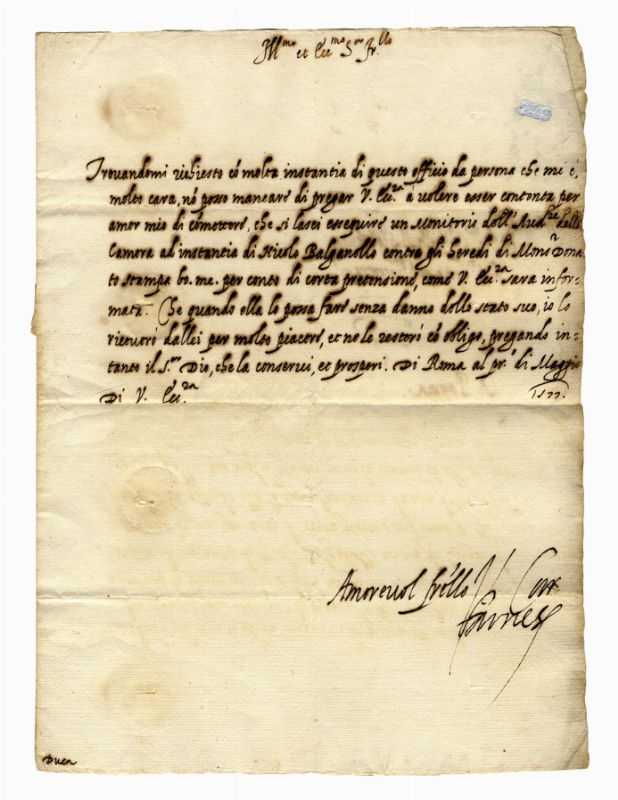 Ill.mo et Ecc.mo S.or fr.llo
Trouandomi richiesto cõ molta instantia di questo officio da persona che me é,
molto cara, nõ posso mancare di pregar V. Ecc.za a uolere esser contenta per
amor mio di cõmettere, che si lasci esseguire un Monitorio dell'Aud.re della
Camera ad instantia di Nicolo Balganello contro gli heredi di Mons.r Dona
to Stampa bo. me. per conto di certa pretensione, come V. Ecc.za sara infor=
mata. Che quando ella lo possa fare senza danno dello stato suo, io lo
riceuerò dallei per molto piacere, et ne le resterò cõ obligo, pregando in=
tanto il S.or Dio, che la conserui, et prosperi. Di Roma al pr.o di Maggio
Di V. Ecc.za 1577.
Amoreuol frello Il Car
Farnes
Duca